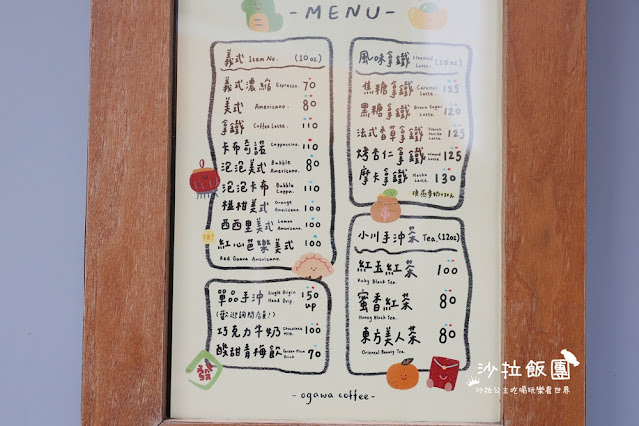 - MENU -
義式 Item No. (10oz)
義式濃縮 Espresso. 70
美式 Americano. 80
拿鐵 Coffee Latte. 110
卡布奇諾 Cappuccino. 110
泡泡美式 Bubble Americano. 80
泡泡卡布 Bubble Cappu. 110
橙柑美式 Orange Americano. 100
西西里美式 Lemon Americano. 100
紅心芭樂美式 100
Red Guava Americano.
單品手沖 Single Origin Hand Drip. 150 up
(歡迎詢問店員!)
巧克力牛奶 Chocolate Milk. 100
酸甜青梅飲 Green Plum Drink 70
風味拿鐵 Flavored Latte. (10oz)
焦糖拿鐵 Caramel Latte. 125
黑糖拿鐵 Brown Sugar Latte. 125
法式香草拿鐵 French Vanilla Latte. 125
烤杏仁拿鐵 Latte. 125
摩卡拿鐵 Mocha Latte. 130
換燕麥奶+30元
小川手沖茶 Tea. (12oz)
紅玉紅茶 100
Ruby Black Tea.
蜜香紅茶 80
Honey Black Tea.
東方美人茶 80
Oriental Beauty Tea.
- ogawa coffee -
沙拉飯團
沙拉公主吃喝玩樂看世界